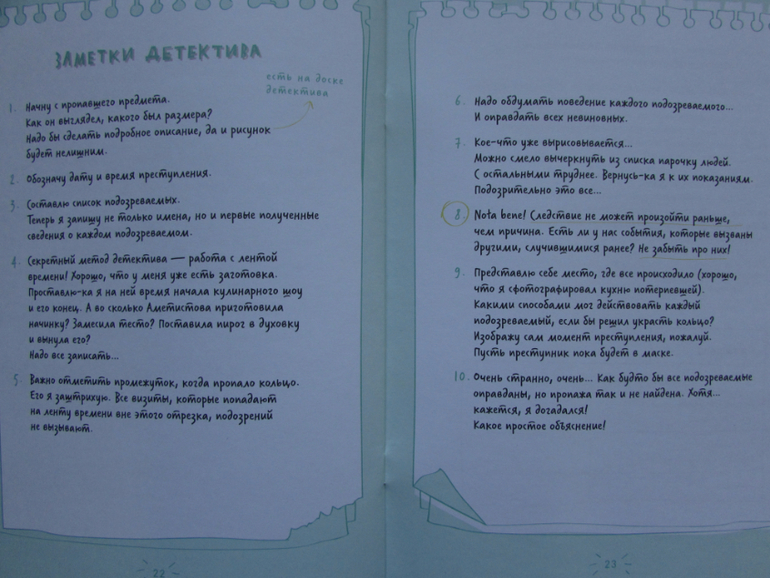 ЗАМЕТКИ ДЕТЕКТИВА
есть на доске
детектива
1. Начну с пропавшего предмета.
Как он выглядел, какого был размера?
Надо бы сделать подробное описание, да и рисунок
будет нелишним.
2. Обозначу дату и время преступления.
3. Составлю список подозреваемых.
Теперь я запишу не только имена, но и первые полученные
сведения о каждом подозреваемом.
4. Секретный метод детектива — работа с лентой
времени! Хорошо, что у меня уже есть заготовка.
Проставлю-ка я на ней время начала кулинарного шоу
и его конец. А во сколько Аметистова приготовила
начинку? Замесила тесто? Поставила пирог в духовку
и вынула его?
Надо все записать...
5. Важно отметить промежуток, когда пропало кольцо.
Его я заштрихую. Все визиты, которые попадают
на ленту времени вне этого отрезка, подозрений
не вызывают.
22
6. Надо обдумать поведение каждого подозреваемого...
И оправдать всех невиновных.
7. Кое-что уже вырисовывается...
Можно смело вычеркнуть из списка парочку людей.
С остальными труднее. Вернусь-ка я к их показаниям.
Подозрительно это все...
8. Nota bene! Следствие не может произойти раньше,
чем причина. Есть ли у нас события, которые вызваны
другими, случившимися ранее? Не забыть про них!
9. Представлю себе место, где все происходило (хорошо,
что я сфотографировал кухню потерпевшей).
Какими способами мог действовать каждый
подозреваемый, если бы решил украсть кольцо?
Изображу сам момент преступления, пожалуй.
Пусть преступник пока будет в маске.
10. Очень странно, очень... Как будто бы все подозреваемые
оправданы, но пропажа так и не найдена. Хотя...
кажется, я догадался!
Какое простое объяснение!
23